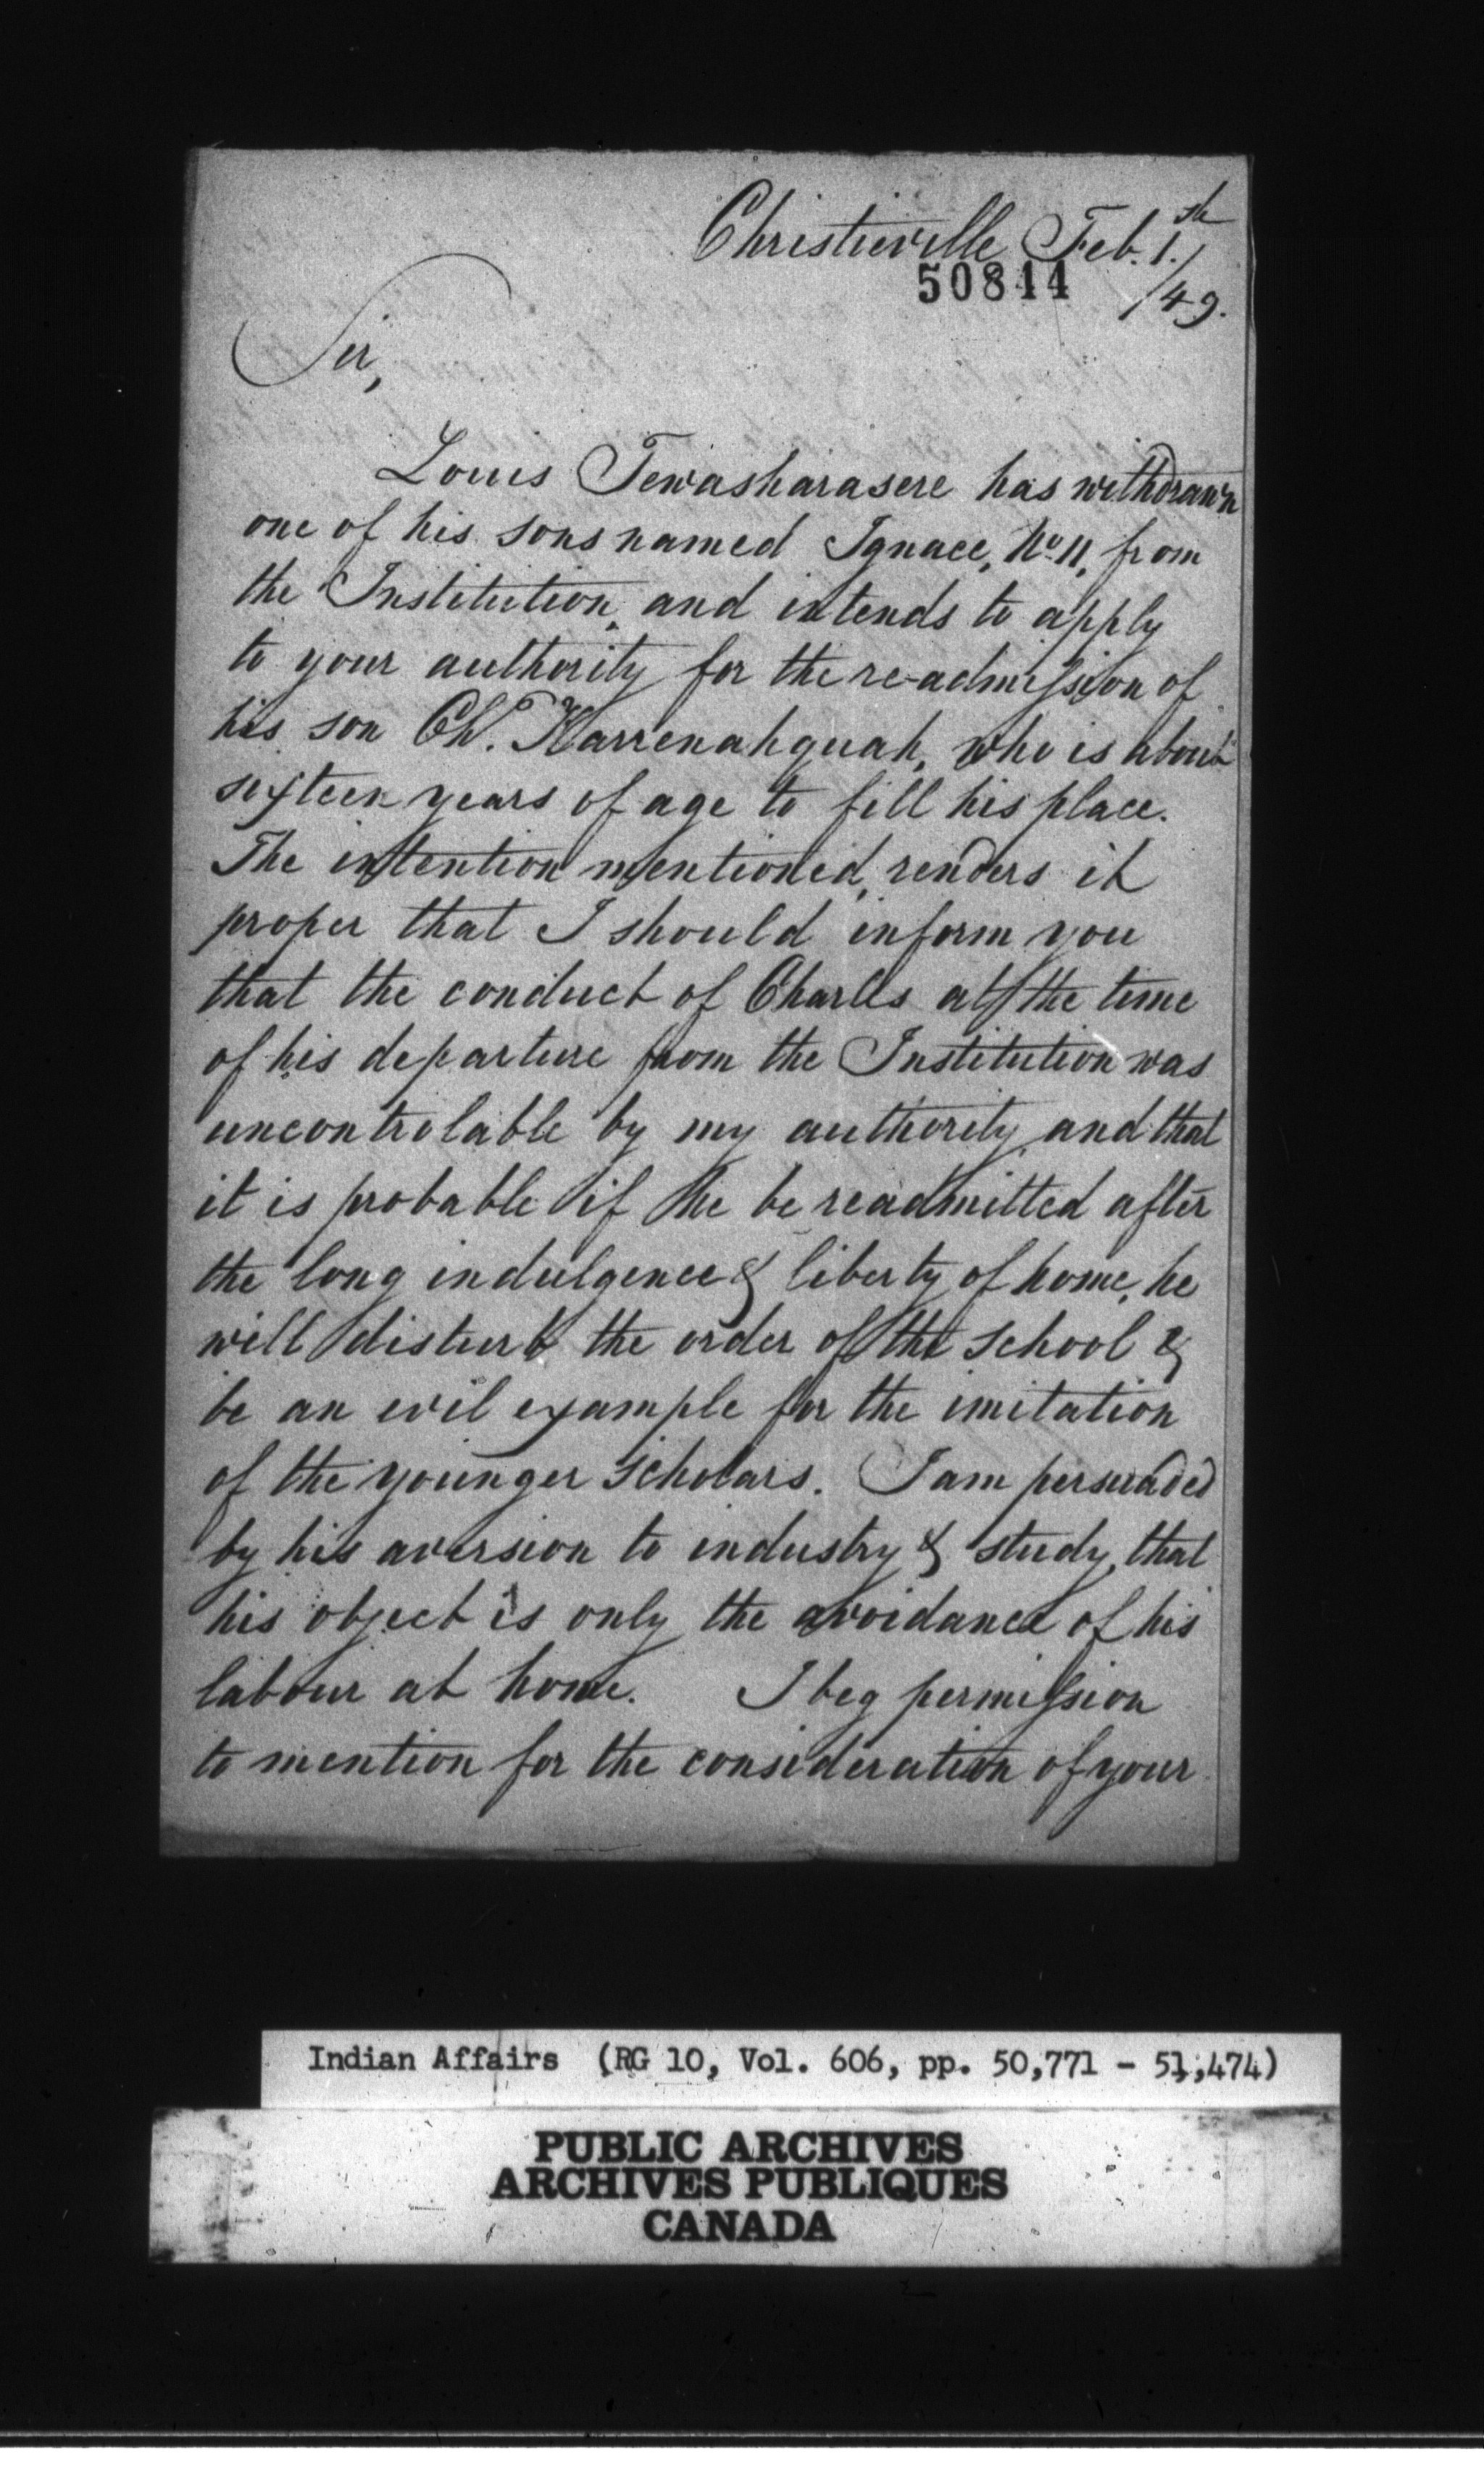 Christieville Feb. 1.st
/49.
50844
Sir,
Louis Tewasharasere has withdrawn
one of his sons named Ignace, No. 11, from
the Institution, and intends to apply
to your authority for the re-admission of
his son Ch. Karrenahquah, who is about
sixteen years of age to fill his place.
The intention mentioned, renders it
proper that I should inform you
that the conduct of Charles at the time
of his departure from the Institution was
uncontrolable by my authority, and that
it is probable if he be readmitted after
the long indulgence & liberty of home, he
will disturb the order of the school &
be an evil example for the imitation
of the younger scholars. I am persuaded
by his aversion to industry & study, that
his object is only the avoidance of his
labour at home. I beg permission
to mention for the consideration of your
Indian Affairs (RG 10, Vol. 606, pp. 50,771 - 51,474)
PUBLIC ARCHIVES
ARCHIVES PUBLIQUES
CANADA